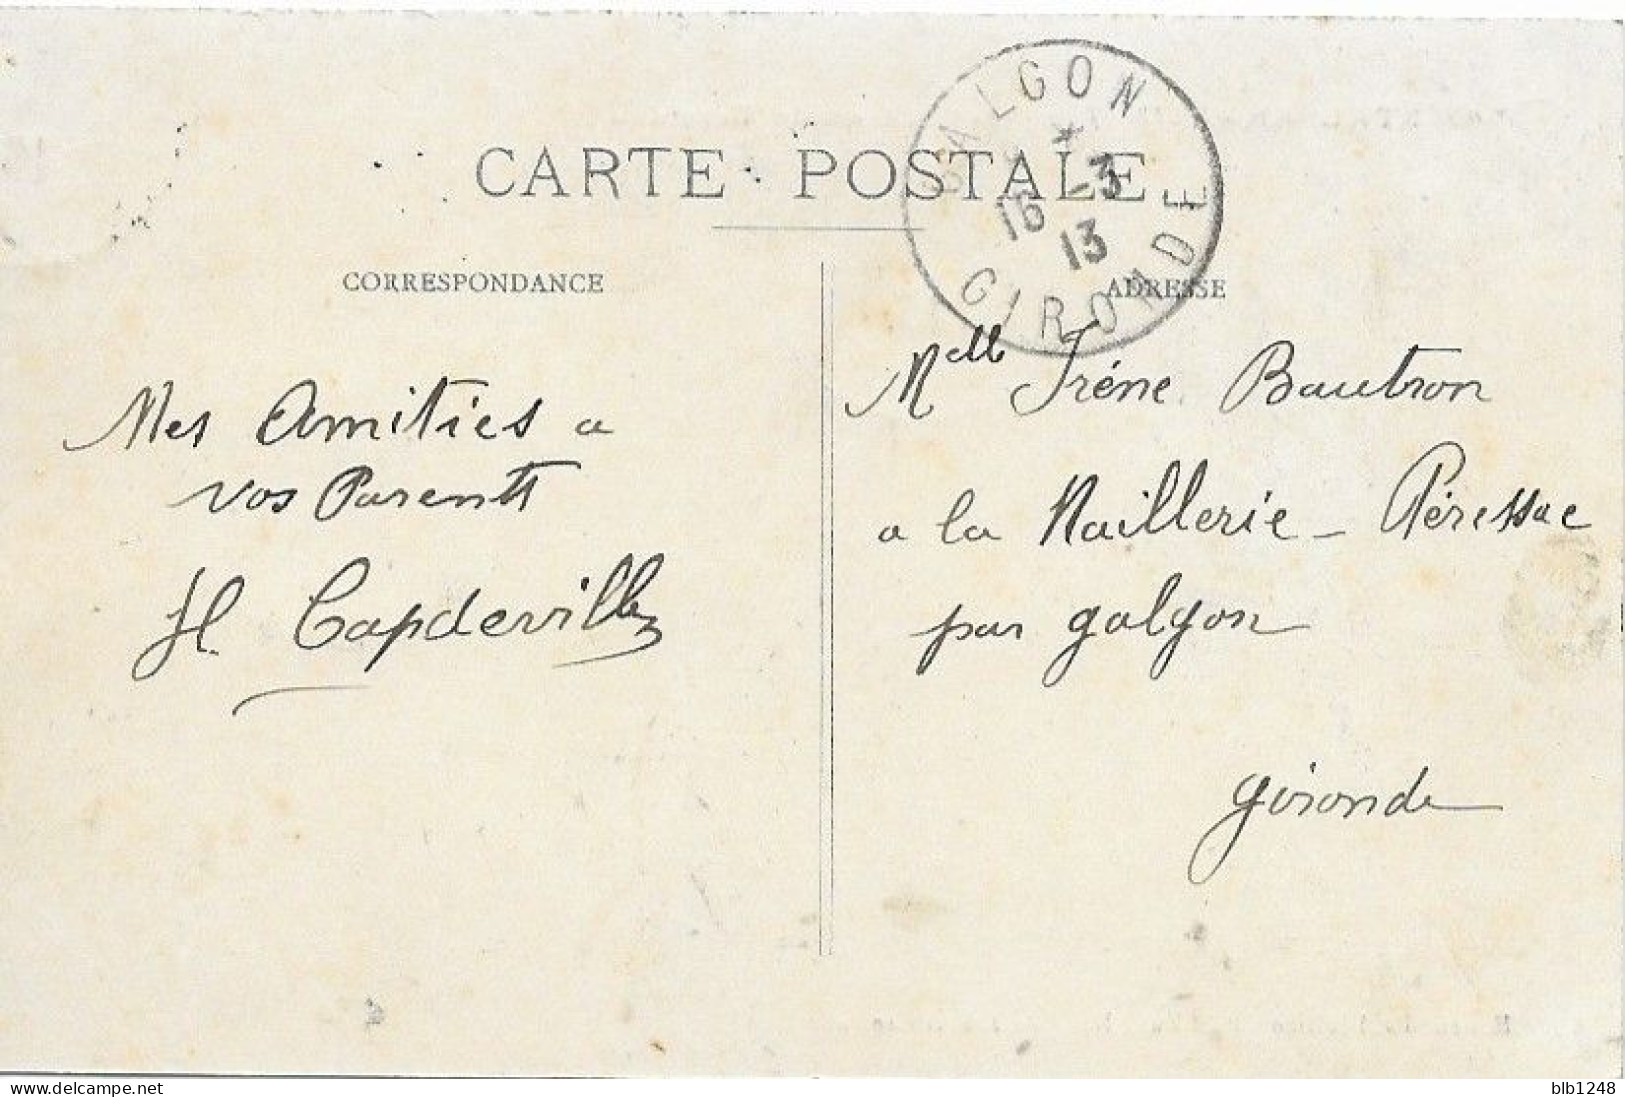 CARTE POSTALE
GALGON
16 -3
13
GIRONDE
CORRESPONDANCE
ADRESSE
Mes Amitiés a
vos Parents
H Capdeville
Melle Iréne Bautron
a la Naillerie - Péressac
par galgon
gironde
www.delcampe.net
blb1248